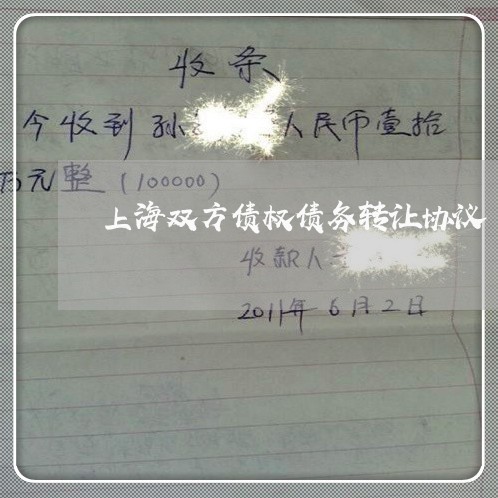 收条
今收到孙 人民币壹拾
万元整(100000)
上海双方债权债务转让协议
收款人
2011年6月2日